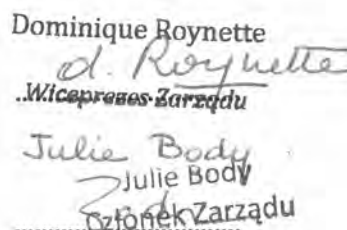 Dominique Roynette
d. Roynette
Wiceprezes Zarządu
Julie Body
Julie Body
Członek Zarządu